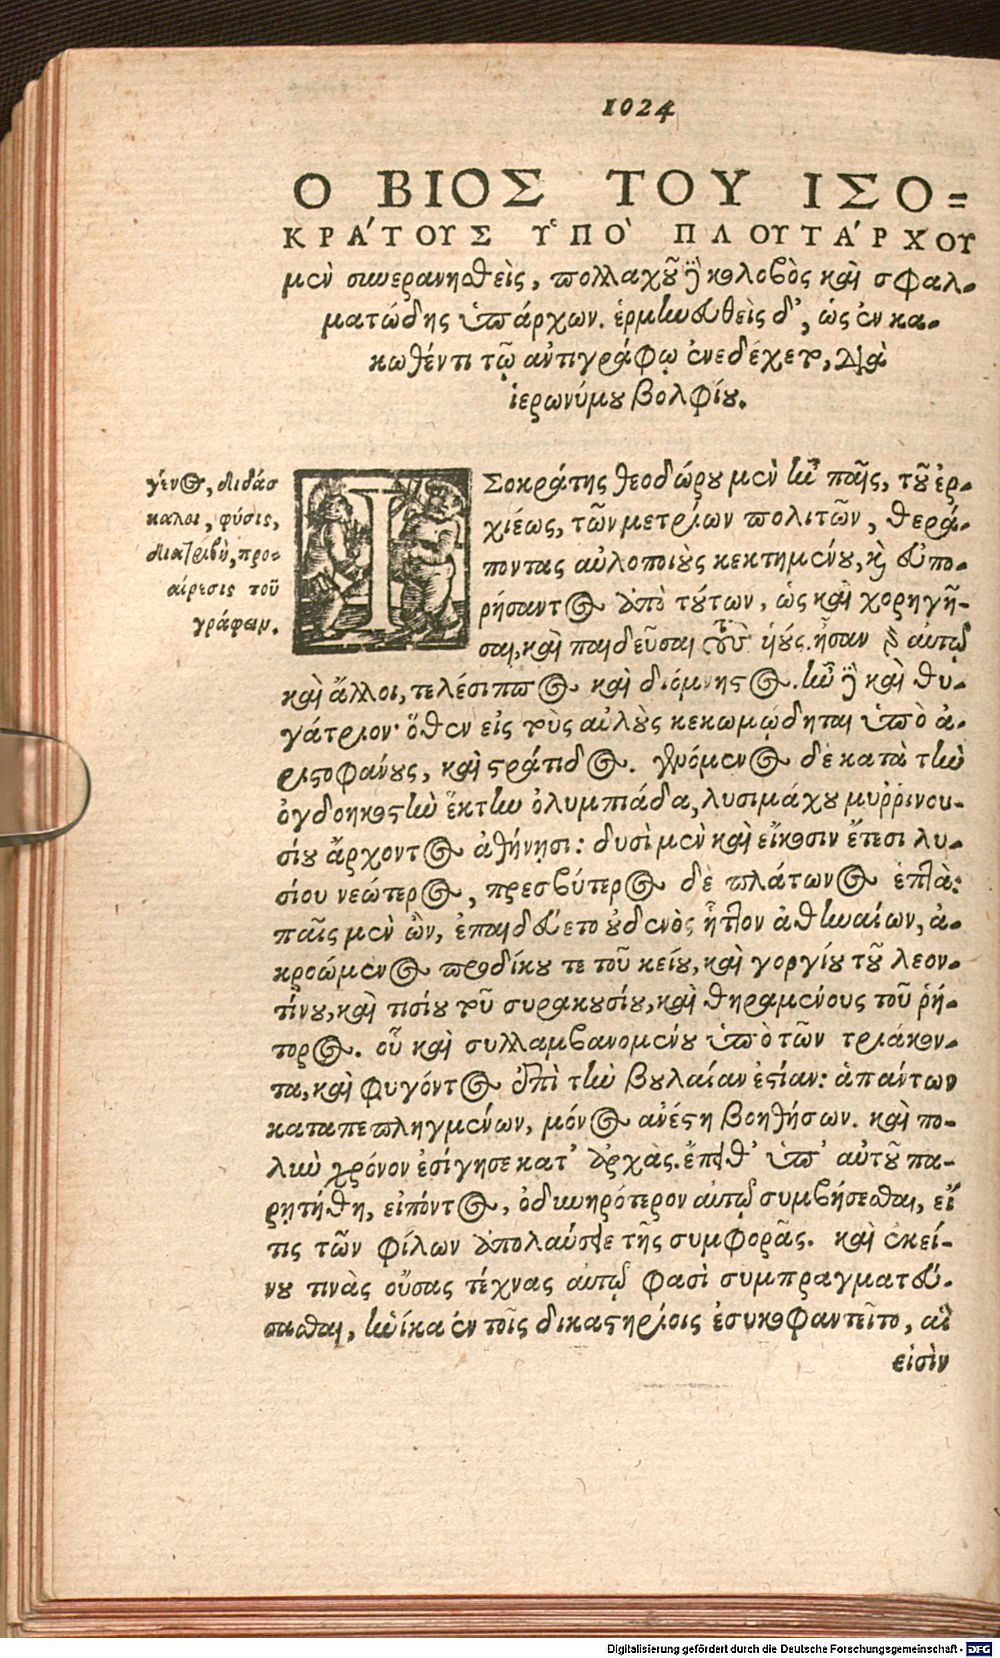 1024
Ο ΒΙΟΣ ΤΟΥ ΙΣΟ=
ΚΡΑ΄ΤΟΥΣ Υ῾ΠΟ` ΠΛΟΥΤΑ΄ΡΧΟΥ
μὲν συνερανισθεὶς, πολλαχοῦ ἢ κολοβὸς καὶ σφαλ-
ματώδης ὑπάρχων. ἑρμηνευθεὶς δ', ὡς ἐν κα-
κωθέντι τῷ ἀντιγράφῳ ἐνεδέχετο, διὰ
ἱερωνύμου βολφίου.
γένος, διδάσ
καλοι, φύσις,
διατριβὴ, προ-
αίρεσις τοῦ
γράφειν.
ΙΣοκράτης θεοδώρου μὲν ἦν παῖς, τοῦ ἐρ-
χιέως, τῶν μετρίων πολιτῶν, θερά-
ποντας αὐλοποιοὺς κεκτημένου, καὶ εὐπο-
ρήσαντος ἀπὸ τούτων, ὡς καὶ χορηγῆ-
σαι, καὶ παιδεῦσαι τοὺς ὑιούς. ἦσαν γὰρ αὐτῷ
καὶ ἄλλοι, τελέσιππος καὶ διόμνηστος. ἦν δὲ καὶ θυ-
γάτριον· ὅθεν εἰς τοὺς αὐλοὺς κεκωμῴδηται ὑπὸ ἀ-
ριστοφάνους, καὶ στράτιδος. γενόμενος δὲ κατὰ τὴν
ὀγδοηκοστὴν ἕκτην ὀλυμπιάδα, λυσιμάχου μυῤῥινου-
σίου ἄρχοντος ἀθήνησι: δυσὶ μὲν καὶ εἴκοσιν ἔτεσι λυ-
σίου νεώτερος, πρεσβύτερος δὲ πλάτωνος ἑπτὰ:
παῖς μὲν ὢν, ἐπαιδεύετο οὐδενὸς ἧττον ἀθηναίων, ἀ-
κροώμενος προδίκου τε τοῦ κείου, καὶ γοργίου τοῦ λεον-
τίνου, καὶ τισίου τοῦ συρακουσίου, καὶ θηραμένους τοῦ ῥή-
τορος. οὗ καὶ συλλαμβανομένου ὑπὸ τῶν τριάκον-
τα, καὶ φυγόντος ἐπὶ τὴν βουλαίαν ἑστίαν: ἁπάντων
καταπεπληγμένων, μόνος ἀνέστη βοηθήσων. καὶ πο-
λὺν χρόνον ἐσίγησε κατ' ἀρχὰς. ἔπειθ' ὑπ' αὐτοῦ πα-
ρῃτήθη, εἰπόντος, ὀδυνηρότερον αὐτῷ συμβήσεσθαι, εἴ
τις τῶν φίλων ἀπολαύσειε τῆς συμφορᾶς. καὶ ἐκεί-
νου τινὰς οὔσας τέχνας αὐτῷ φασὶ συμπραγματεύ-
σασθαι, ἡνίκα ἐν τοῖς δικαστηρίοις ἐσυκοφαντεῖτο, αἵ
εἰσὶν
Digitalisierung gefördert durch die Deutsche Forschungsgemeinschaft - DFG